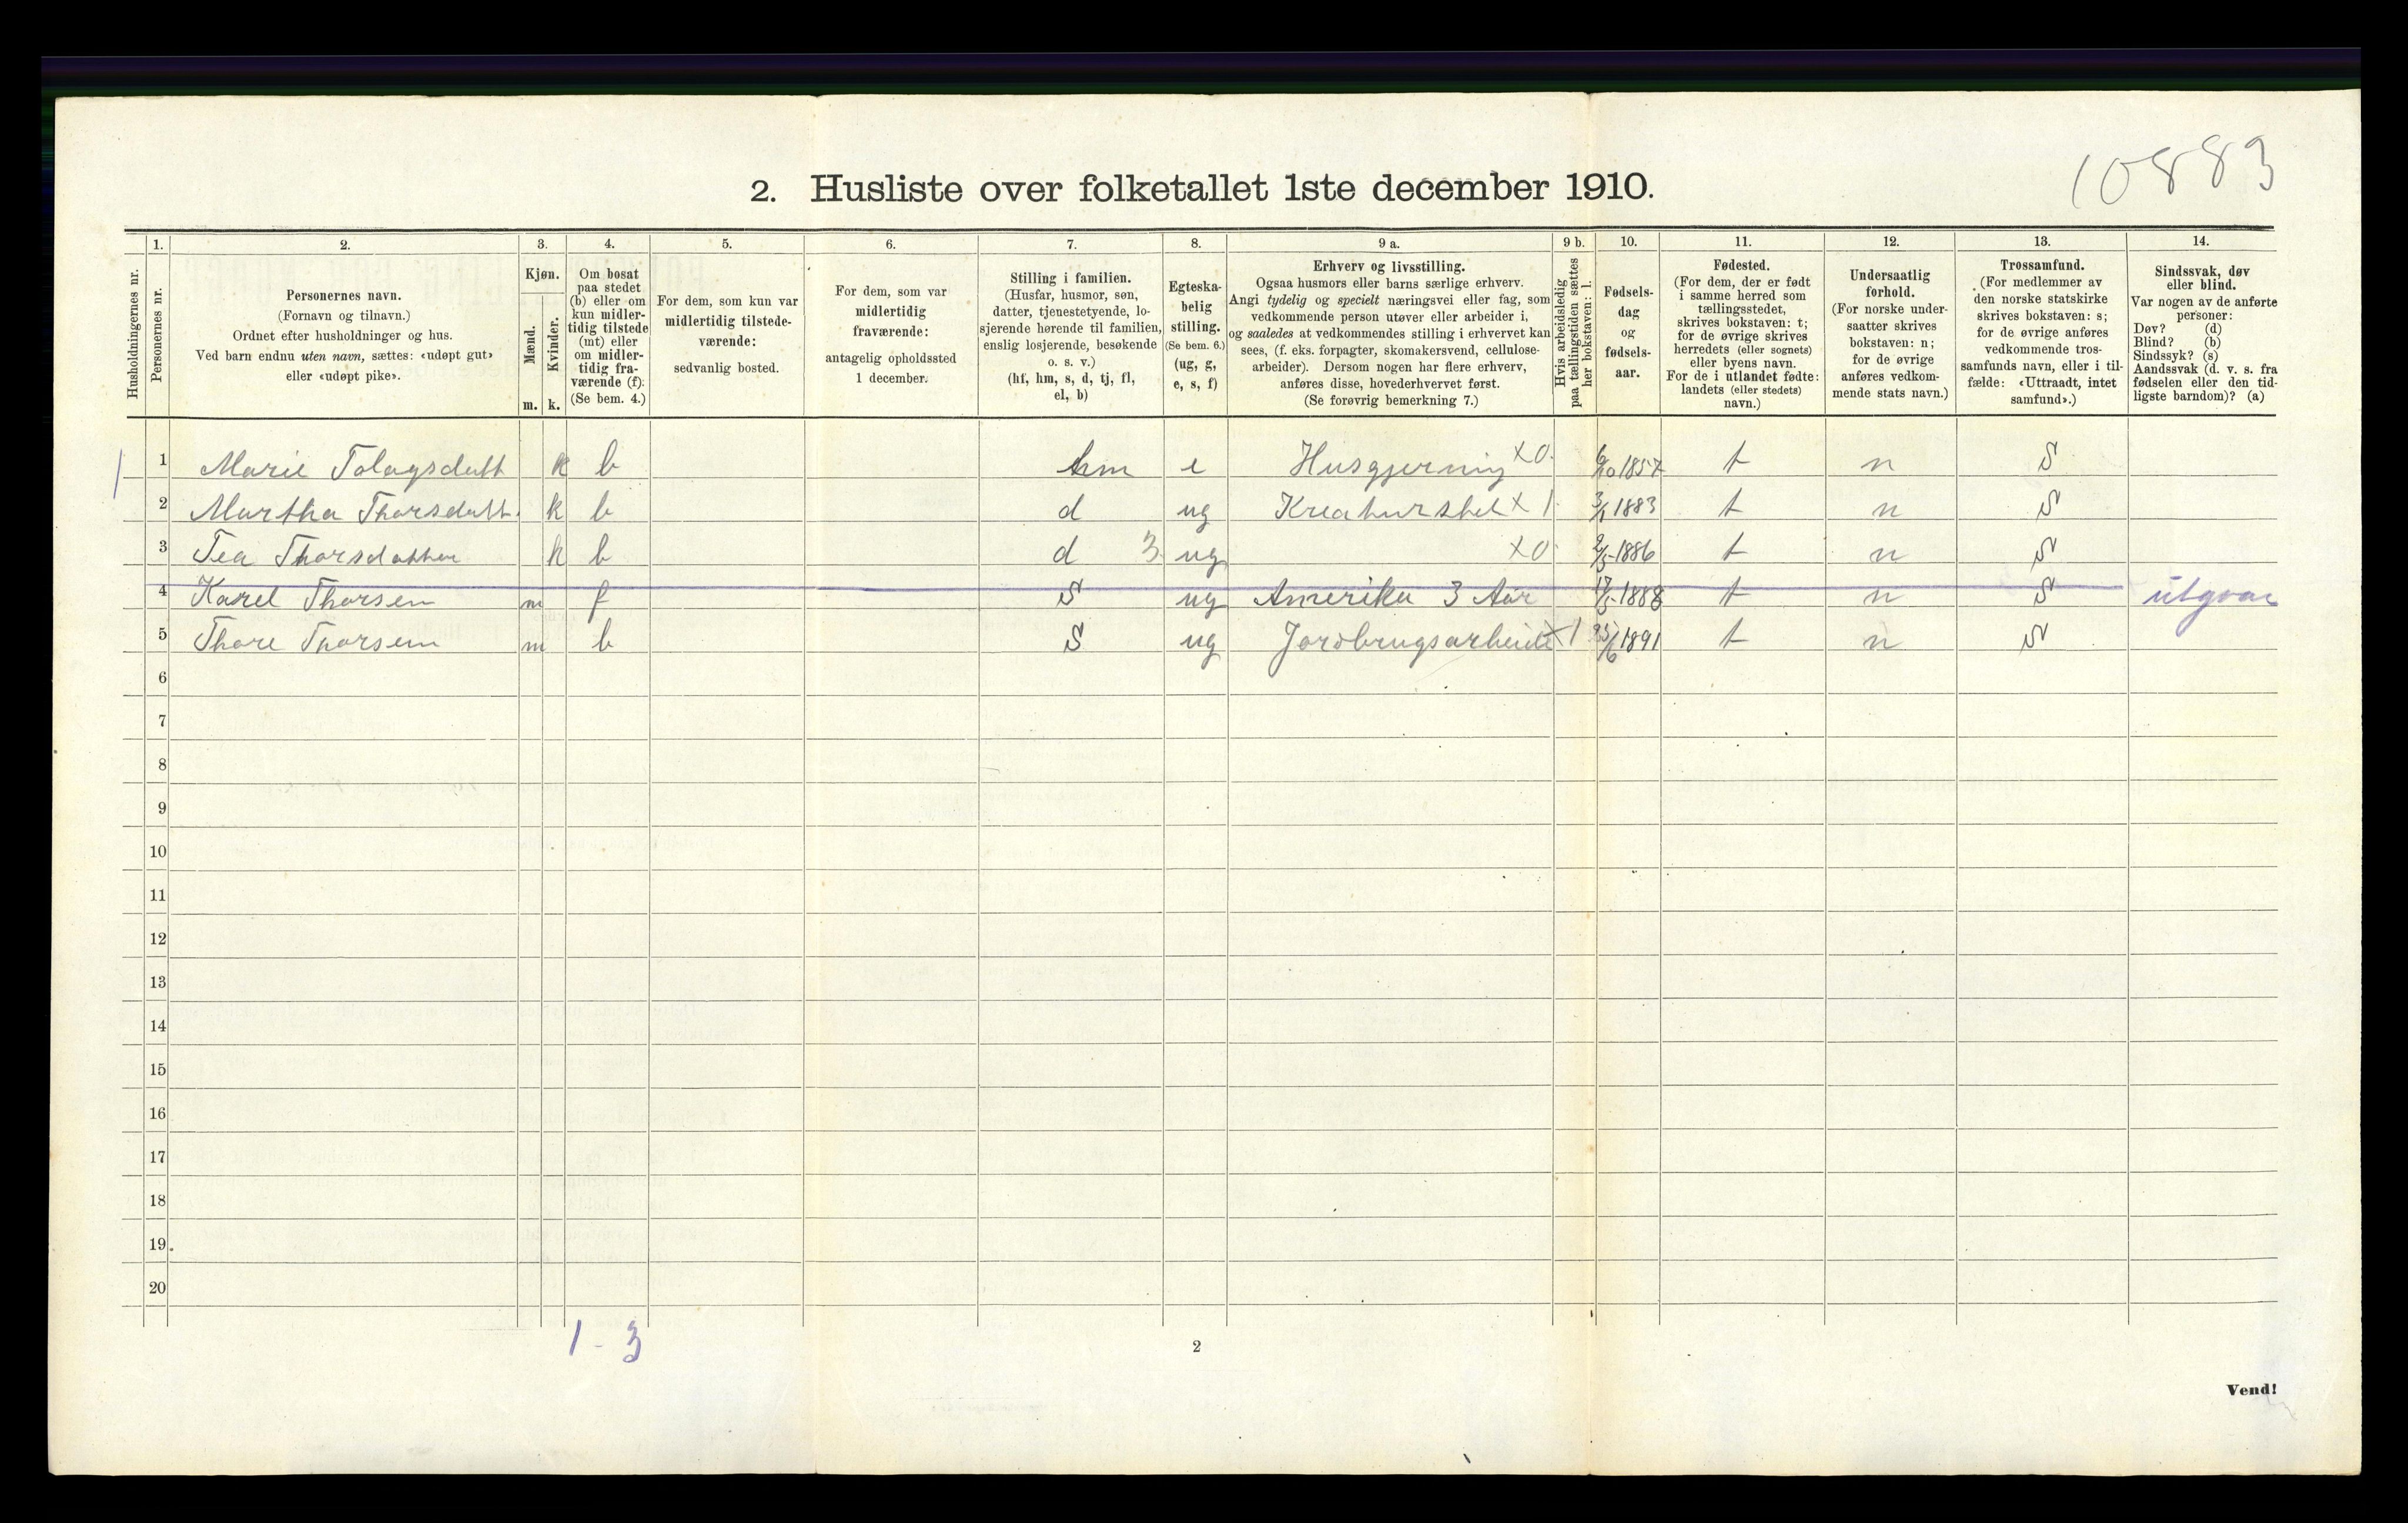 10883
2. Husliste over folketallet 1ste december 1910.
Husholdningernes nr.
1. Personernes nr.
2. Personernes navn.
(Fornavn og tilnavn.)
Ordnet efter husholdninger og hus.
Ved barn endnu uten navn, sættes: «udøpt gut»
eller «udøpt pike».
3. Kjøn.
Mænd. m.
Kvinder. k.
4. Om bosat
paa stedet
(b) eller om
kun midler-
tidig tilstede
(mt) eller
om midler-
tidig fra-
værende (f).
(Se bem. 4.)
5. For dem, som kun var
midlertidig tilstede-
værende:
sedvanlig bosted.
6. For dem, som var
midlertidig
fraværende:
antagelig opholdssted
1 december.
7. Stilling i familien.
(Husfar, husmor, søn,
datter, tjenestetyende, lo-
sjerende hørende til familien,
enslig losjerende, besøkende
o. s. v.)
(hf, hm, s, d, tj, fl,
el, b)
8. Egteska-
belig
stilling.
(Se bem. 6.)
(ug, g,
e, s, f)
9 a. Erhverv og livsstilling.
Ogsaa husmors eller barns særlige erhverv.
Angi tydelig og specielt næringsvei eller fag, som
vedkommende person utøver eller arbeider i,
og saaledes at vedkommendes stilling i erhvervet kan
sees, (f. eks. forpagter, skomakersvend, cellulose-
arbeider). Dersom nogen har flere erhverv,
anføres disse, hovederhvervet først.
(Se forøvrig bemerkning 7.)
9 b. Hvis arbeidsledig
paa tællingstiden sættes
her bokstaven: l.
10. Fødsels-
dag
og
fødsels-
aar.
11. Fødested.
(For dem, der er født
i samme herred som
tællingsstedet,
skrives bokstaven: t;
for de øvrige skrives
herredets (eller sognets)
eller byens navn.
For de i utlandet fødte:
landets (eller stedets)
navn.)
12. Undersaatlig
forhold.
(For norske under-
saatter skrives
bokstaven: n;
for de øvrige
anføres vedkom-
mende stats navn.)
13. Trossamfund.
(For medlemmer av
den norske statskirke
skrives bokstaven: s;
for de øvrige anføres
vedkommende tros-
samfunds navn, eller i til-
fælde: «Uttraadt, intet
samfund».)
14. Sindssvak, døv
eller blind.
Var nogen av de anførte
personer:
Døv? (d)
Blind? (b)
Sindssyk? (s)
Aandssvak (d. v. s. fra
fødselen eller den tid-
ligste barndom)? (a)
1 1 Marie Tolagsdatt k b hm e Husgjerning X0. 1857 t n S
2 Martha Thorsdatt. k b d ug Kreaturstel X 1. 3/1 1883 t n S
3 Tea Thorsdatter k b d 3 ug X0. 2/5 1886 t n S
4 Karel Thorsen m f S ug Amerika 3 Aar 17/5 1888 t n S utgaar
5 Thore Thorsen m b S ug Jordbrugsarbeide X 1 25/6 1891 t n S
6
7
8
9
10
11
12
13
14
15
16
17
18
19
20
1 - 3
2
Vend!